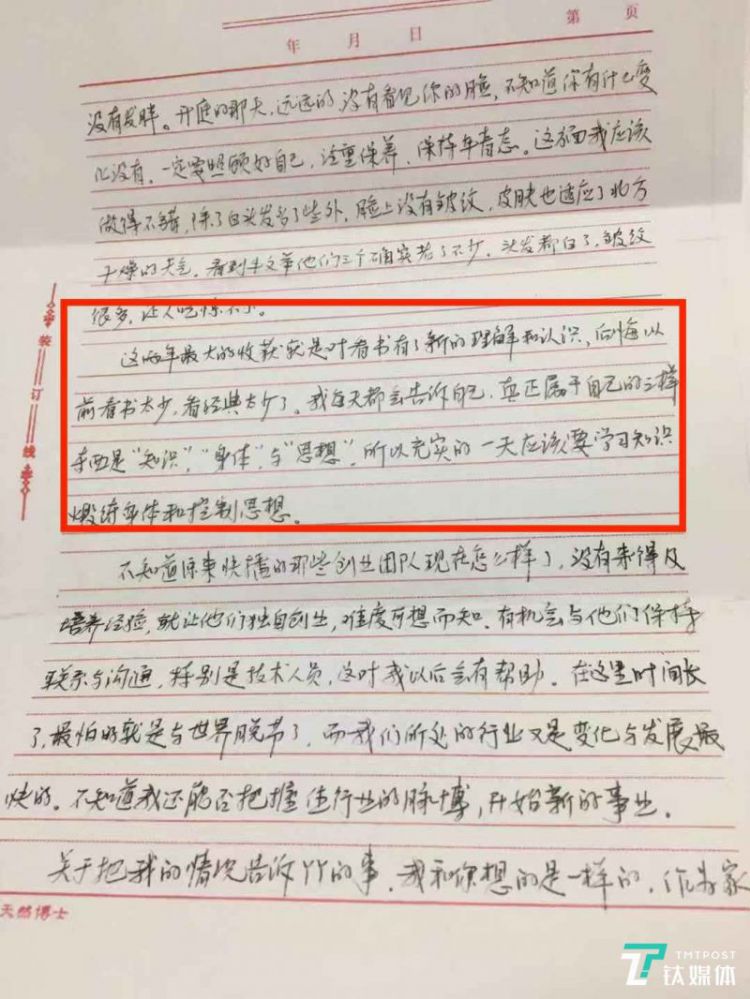 第 页
年 月 日
没有发胖。开庭的那天,远远的,没有看见你的脸,不知道你有什么变
化没有,一定要照顾好自己,注重保养,保持年青态。这方面我应该
做得不错,除了白头发多了些外,脸上没有皱纹,皮肤也适应了北方
干燥的天气,看到牛文举他们三个确实老了不少,头发都白了,皱纹
很多,让人吃惊不小。
这两年最大的收获就是对看书有了新的理解和认识,后悔以
前看书太少,看经典太少了。我每天都会告诉自己,真正属于自己的三样
东西是“知识”,“身体”与“思想”,所以充实的一天应该要学习知识
煅练身体和控制思想。
不知道原来快播的那些创业团队现在怎么样了,没有来得及
培养经验,就让他们独自创业,难度可想而知,有机会与他们保持
联系与沟通,特别是技术人员,这对我以后会有帮助。在这里时间长
了,最怕的就是与世界脱节了,而我们所处的行业又是变化与发展最
快的。不知道我还能否把握住行业的脉博,开始新的事业。
关于把我的情况告诉丫丫的事,我和你想的是一样的,作为家
装订线
天然博士
TMTPOST
钛媒体